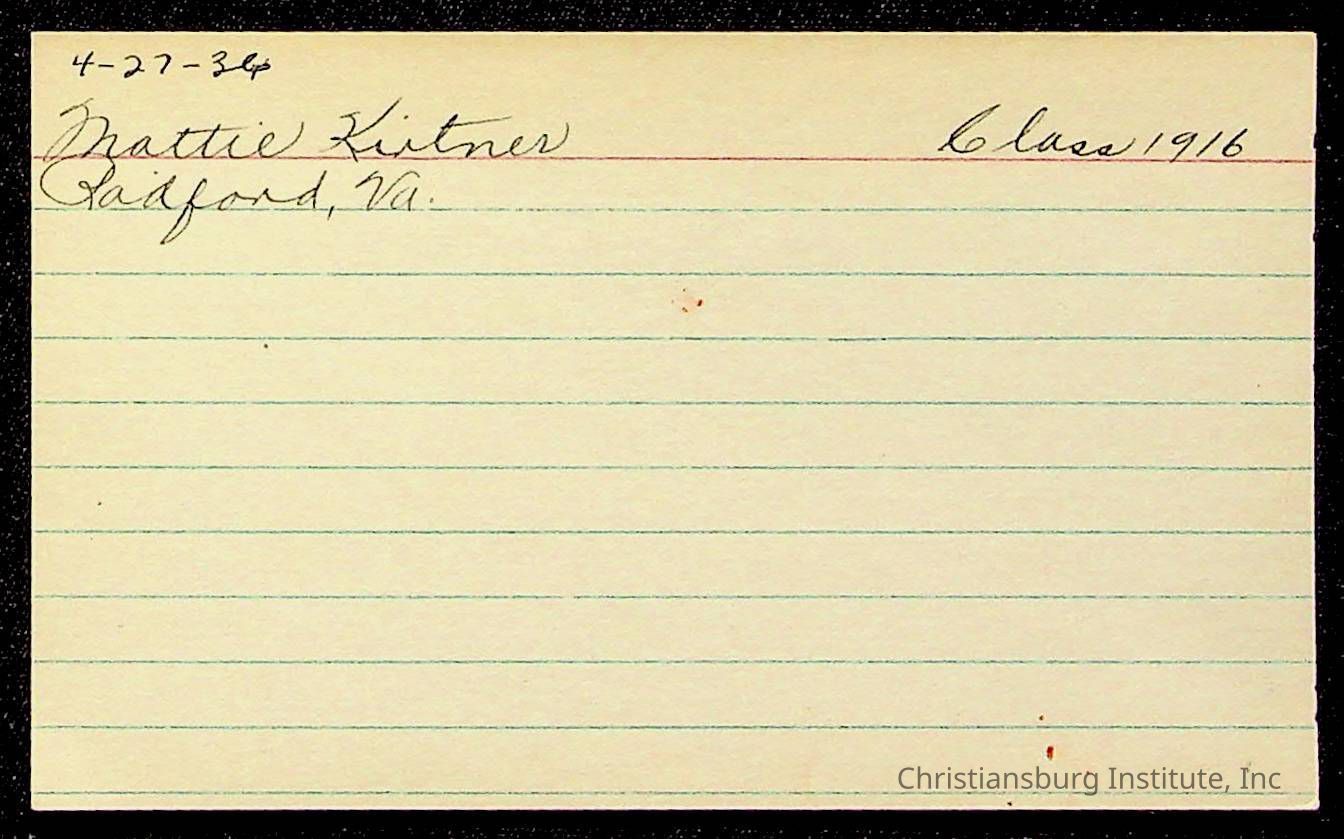 4-27-36
Mattie Kirtner Class 1916
Radford, Va.
Christiansburg Institute, Inc